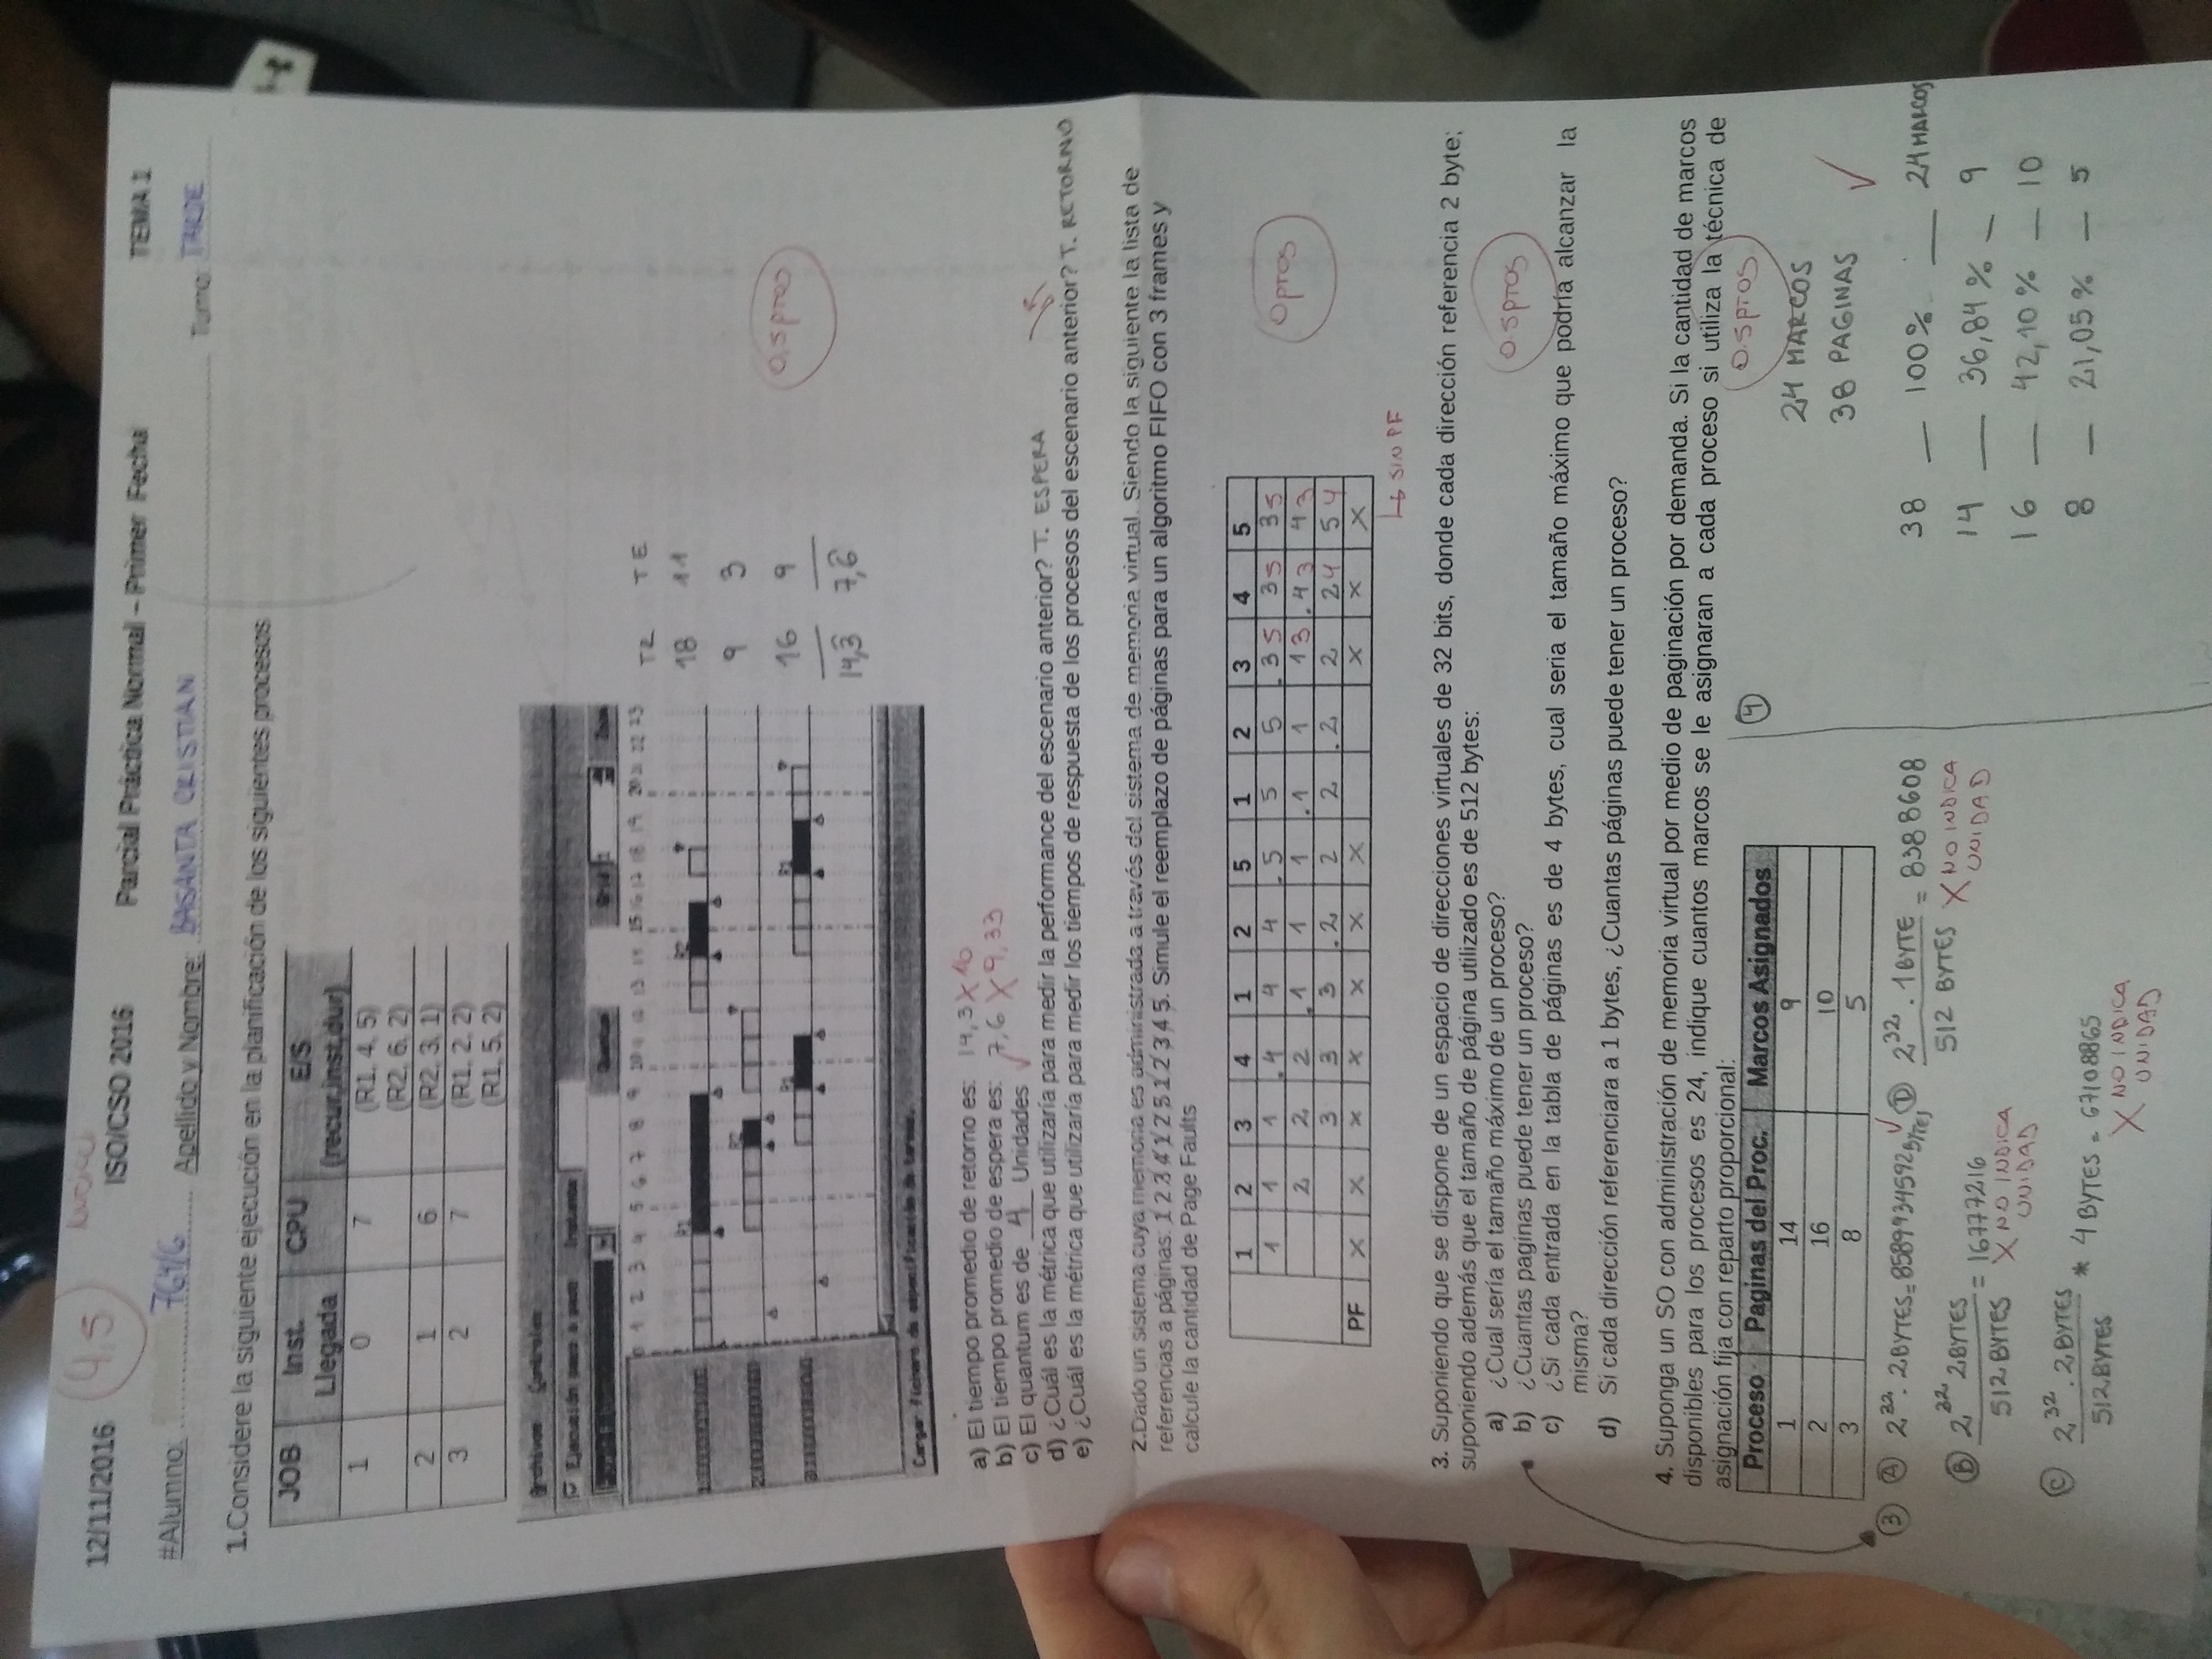 12/11/2016 4,5 ISO/CSO 2016 Parcial Práctica Normal – Primer Fecha TEMA 1
#Alumno: 764/6 Apellido y Nombre: BASANTA CRISTIAN Turno: TARDE
1.Considere la siguiente ejecución en la planificación de los siguientes procesos
JOB Inst. Llegada CPU E/S (recur,inst,dur)
1 0 7 (R1, 4, 5)
(R2, 6, 2)
2 1 6 (R2, 3, 1)
3 2 7 (R1, 2, 2)
(R1, 5, 2)
Archivos Controles
Ejecución paso a paso Instante
Quantum Grid 1 Zoom
0 1 2 3 4 5 6 7 8 9 10 11 12 13 14 15 16 17 18 19 20 21 22 23 TR TE
R1 R2 18 11
R2 9 3
R1 R1 16 9
0,5 PTOS
14,3 7,6
Cargar fichero de especificación de tareas.
a) El tiempo promedio de retorno es: 14,3 X 16
b) El tiempo promedio de espera es: 7,6 X 9,33
c) El quantum es de 4 Unidades ✓
d) ¿Cuál es la métrica que utilizaría para medir la performance del escenario anterior? T. ESPERA
e) ¿Cuál es la métrica que utilizaría para medir los tiempos de respuesta de los procesos del escenario anterior? T. RETORNO
2.Dado un sistema cuya memoria es administrada a través del sistema de memoria virtual. Siendo la siguiente la lista de
referencias a páginas: 1 2 3 4 1 2 5 1 2 3 4 5. Simule el reemplazo de páginas para un algoritmo FIFO con 3 frames y
calcule la cantidad de Page Faults
1 2 3 4 1 2 5 1 2 3 4 5
1 1 1 .4 4 4 .5 5 5 .3 5 3 5 3 5
2 2 2 .1 1 1 .1 1 1 3 .4 3 4 3
3 3 3 .2 2 2 .2 2 2 4 5 4
PF X X X X X X X X X X
0 PTOS
↳ SIN PF
3. Suponiendo que se dispone de un espacio de direcciones virtuales de 32 bits, donde cada dirección referencia 2 byte;
suponiendo además que el tamaño de página utilizado es de 512 bytes:
a) ¿Cual sería el tamaño máximo de un proceso?
b) ¿Cuantas paginas puede tener un proceso?
0.5 PTOS
c) ¿Si cada entrada en la tabla de páginas es de 4 bytes, cual seria el tamaño máximo que podría alcanzar la
misma?
d) Si cada dirección referenciara a 1 bytes, ¿Cuantas páginas puede tener un proceso?
4. Suponga un SO con administración de memoria virtual por medio de paginación por demanda. Si la cantidad de marcos
disponibles para los procesos es 24, indique cuantos marcos se le asignaran a cada proceso si utiliza la técnica de
asignación fija con reparto proporcional:
Proceso Paginas del Proc. Marcos Asignados
1 14 9
2 16 10
3 8 5
4 0.5 PTOS
24 MARCOS
38 PAGINAS ✓
38 — 100% — 24 MARCOS
14 — 36,84% — 9
16 — 42,10% — 10
8 — 21,05% — 5
3 A 2^32 . 2 BYTES = 8589934592 BYTES ✓
D 2^32 . 1 BYTE / 512 BYTES = 8388608
X NO INDICA
UNIDAD
B 2^32 2 BYTES / 512 BYTES = 16777216
X NO INDICA
UNIDAD
C 2^32 . 2 BYTES / 512 BYTES * 4 BYTES = 67108865
X NO INDICA
UNIDAD